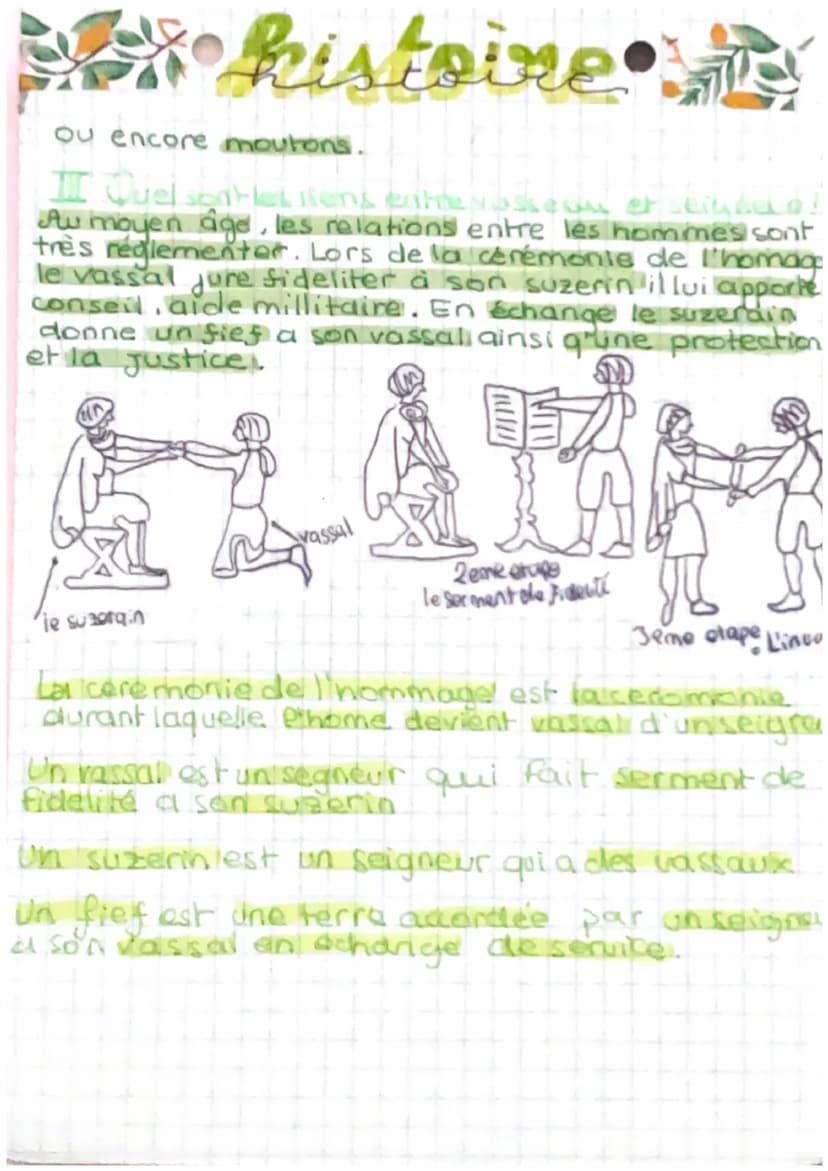 histoire
histoire
ou encore moutons.
III Quel sont les liens entre vasseau et
Au moyen âge, les relations entre les hommes sont
très réglementer. Lors de la cérémonie de l'homag
le vassal jure fideliter à son suzerin il lui apporte
conseil, aide millitaire. En échange le suzerain
donne un fief a son vassal ainsi q'une protection
et la justice.
vassal
le suzerain
2eme etape
le serment de fidelité
3eme etape
La ceremonie de l'hommage est la ceromonie
durant laquelle devient vassal d'un seigne
Un vassal est un segneur qui fait serment de
fidelité a son suzerin
Un suzerin est un seigneur qui a des vassaux
Un fief est une terre accordée par un seigne
a son vassal en échange de service.